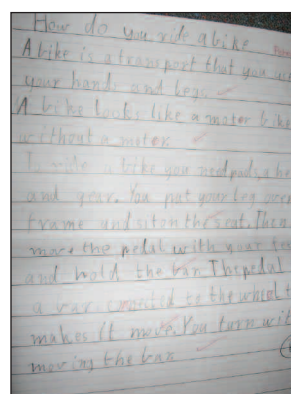 How do you ride a bike
A bike is a transport that you
your hands and legs.
A bike looks like a moter bike
without a moter
To ride a bike you ned pads, a he
and gear. You put your leg over
frame and sit on the seat. Then
move the pedal with your
and hold the bar. The pedal
a bar conected to the wheel
makes it move. You turn wit
moving the bar